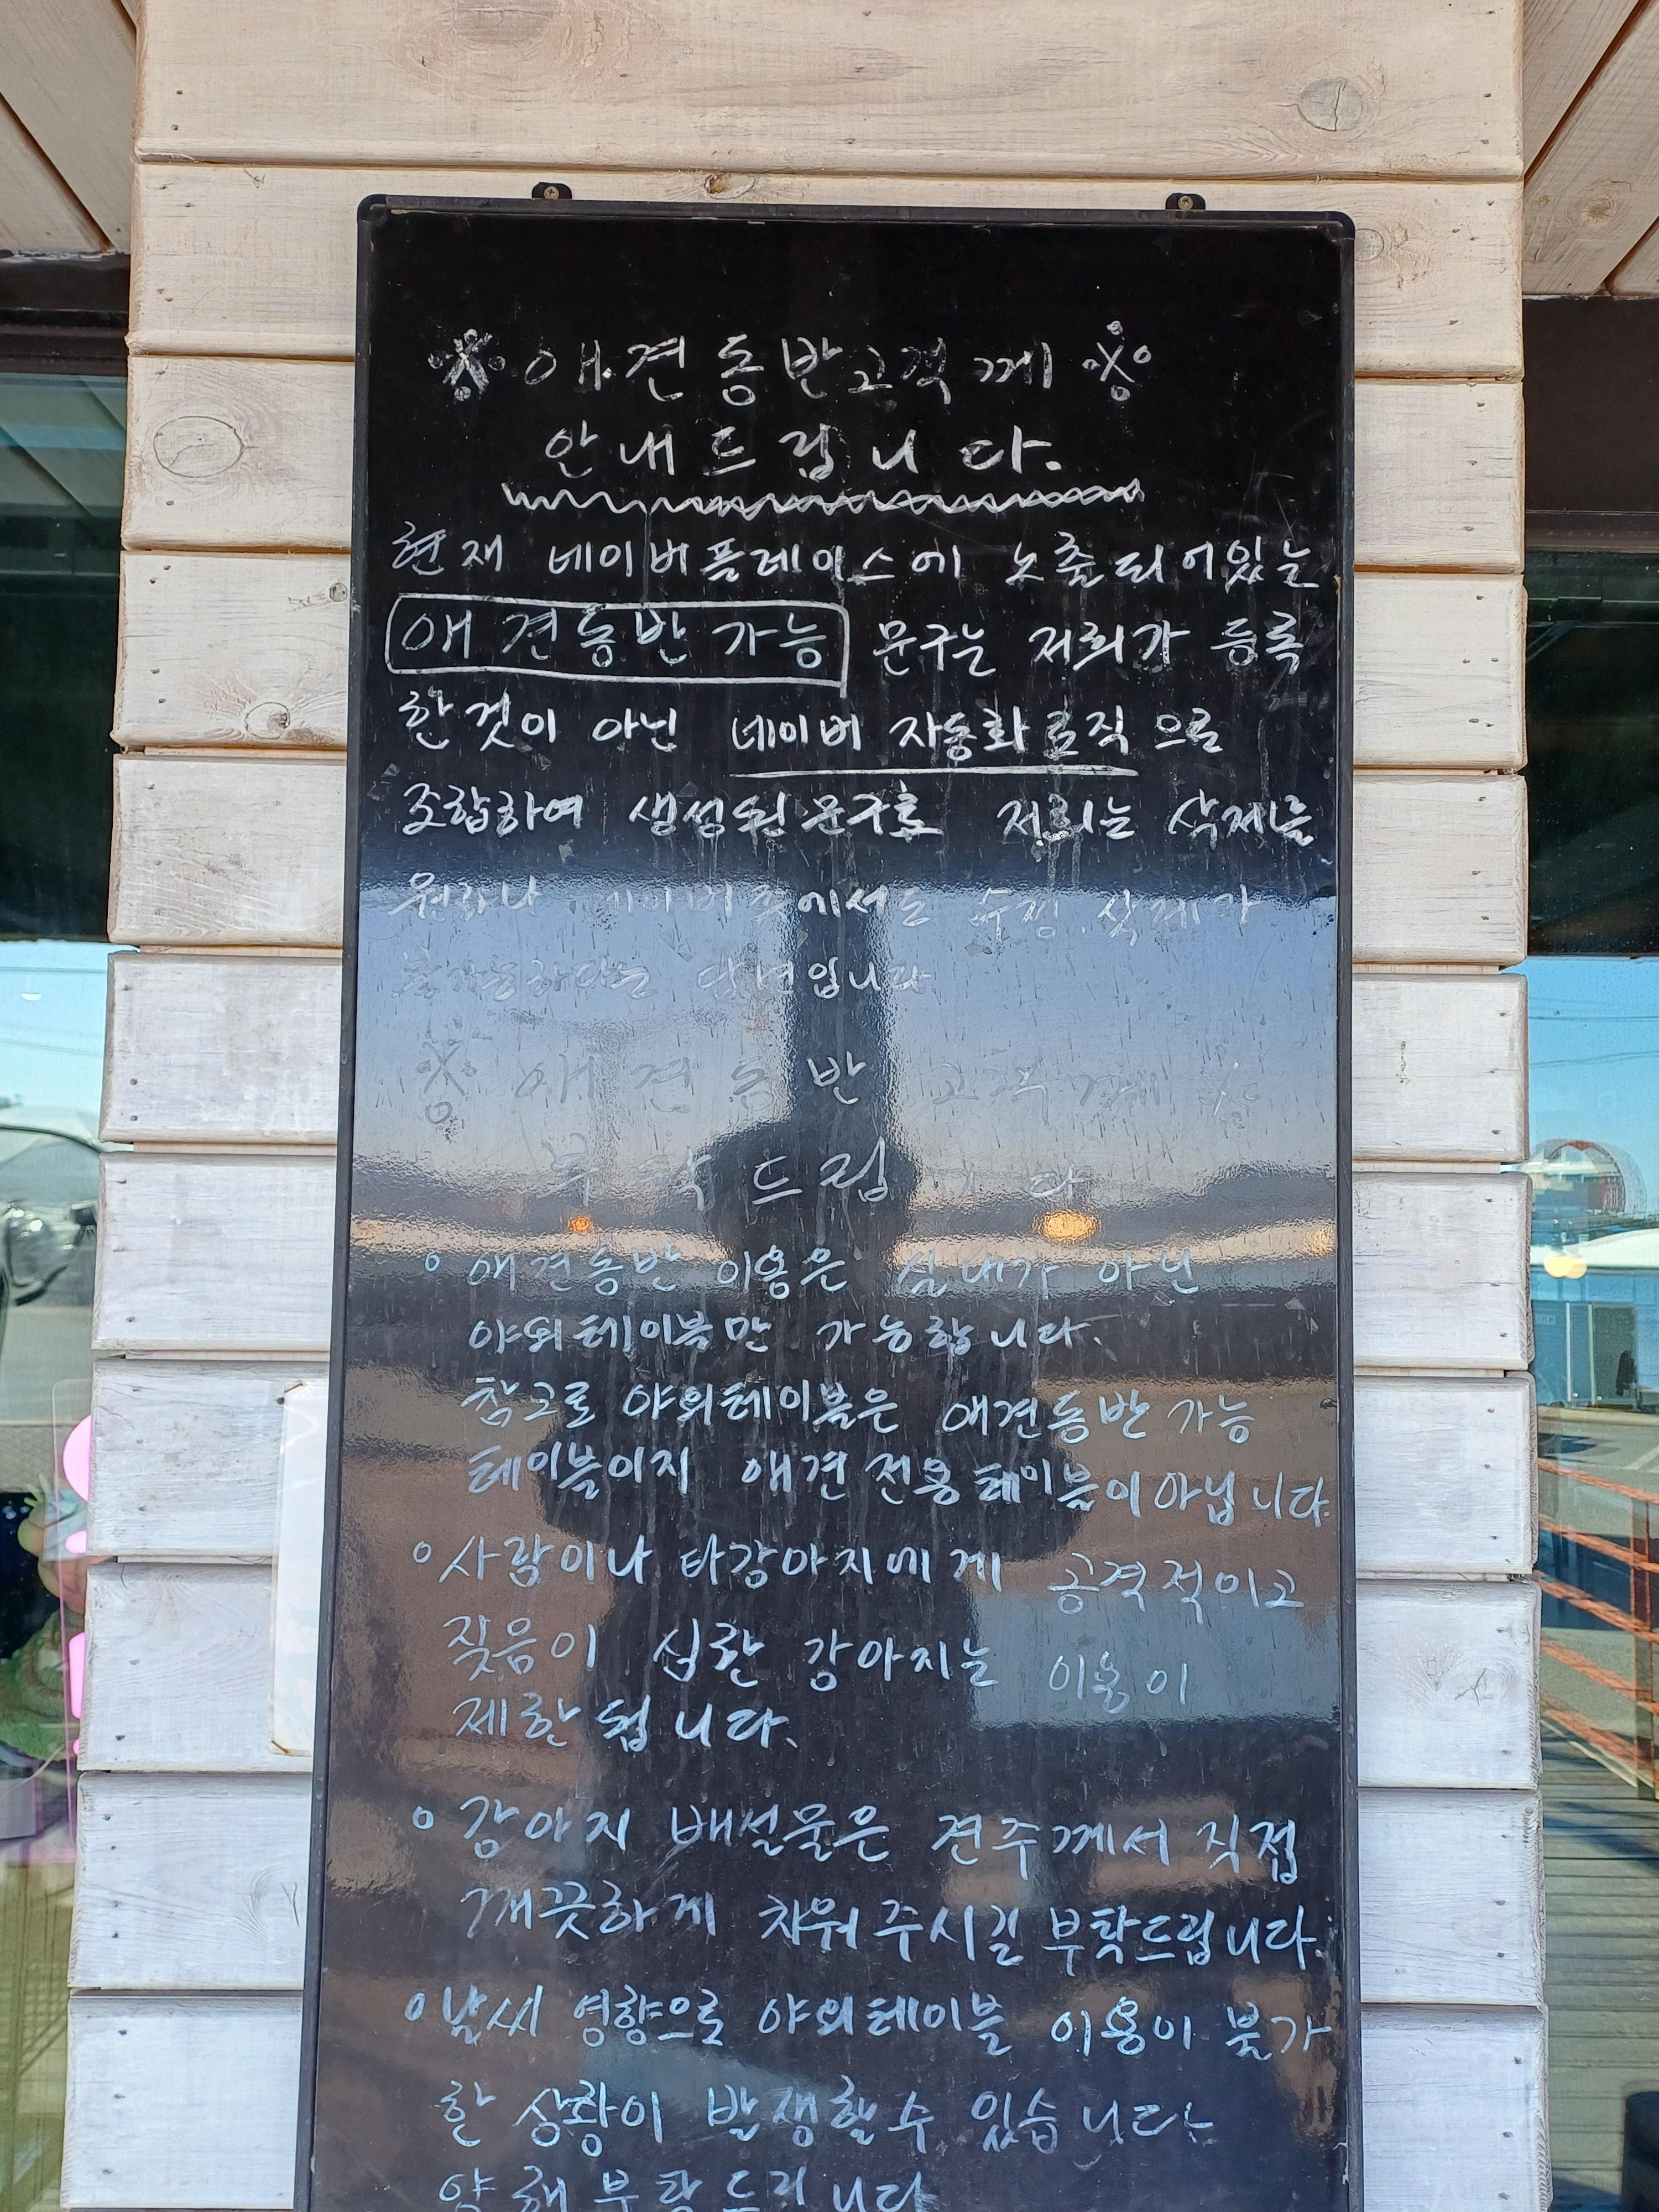 ※ 애견동반고객께 ※
안내드립니다.
현재 네이버플레이스에 노출되어있는
애견동반 가능 문구는 저희가 등록
한것이 아닌 네이버 자동화로직으로
조합하여 생성된문구로 저희는 삭제를
원하나 네이버측에서도 수정.삭제가
불가능하다는 답변입니다
※ 애견동반 고객께 ※
부탁드립니다
° 애견동반 이용은 실내가 아닌
야외테이블만 가능합니다.
참고로 야외테이블은 애견동반 가능
테이블이지 애견전용테이블이아닙니다.
° 사람이나 타강아지에게 공격적이고
짖음이 심한 강아지는 이용이
제한됩니다.
° 강아지 배설물은 견주께서 직접
깨끗하게 치워주시길 부탁드립니다.
° 날씨 영향으로 야외테이블 이용이 불가
할 상황이 발생할수 있습니다
양해부탁드립니다